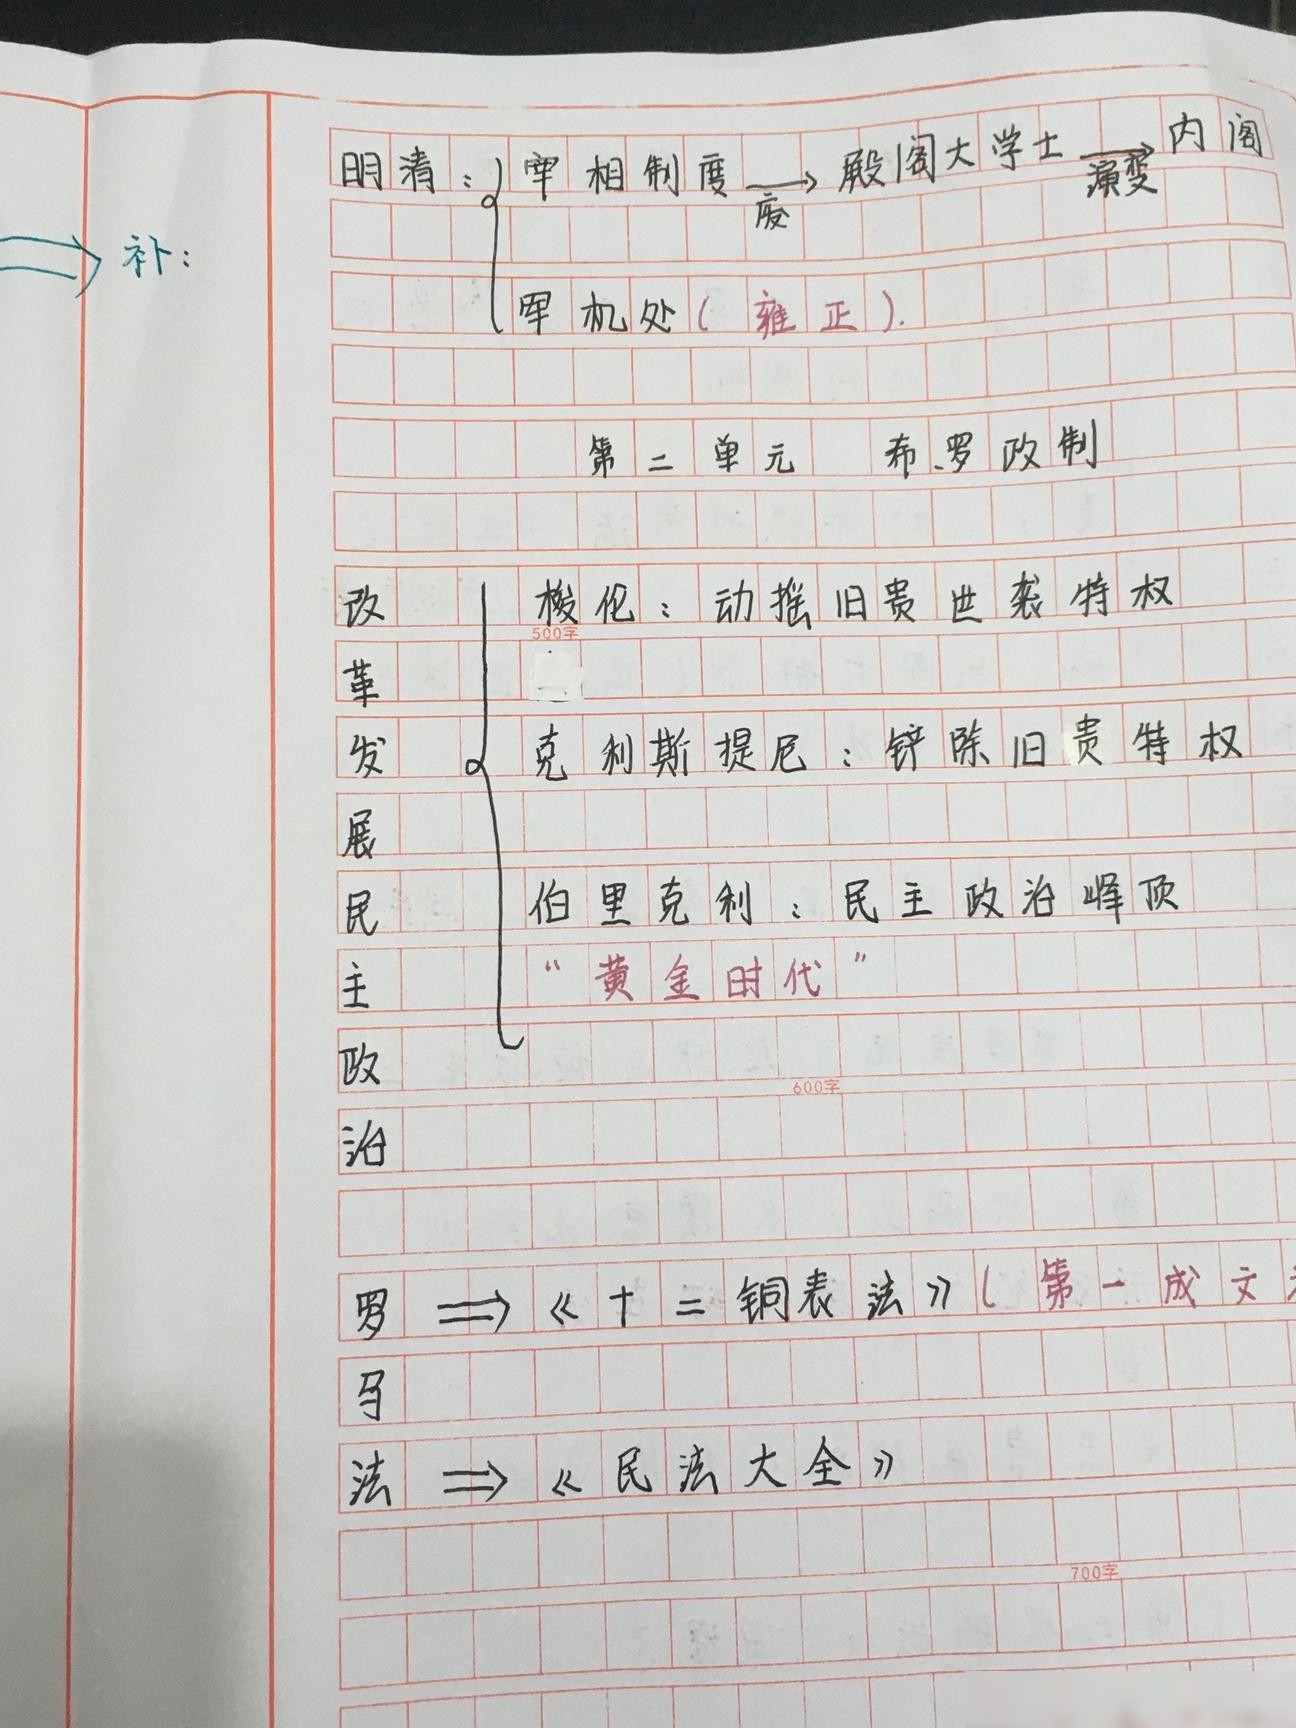 明清：宰相制度 → 殿阁大学士 → 内阁
废
演变
⇒ 补：
军机处（雍正）.
第二单元 希、罗政制
改革发展民主政治
梭伦：动摇旧贵世袭特权
500字
克利斯提尼：铲除旧贵特权
伯里克利：民主政治峰顶
“黄金时代”
600字
罗马法
⇒《十二铜表法》（第一成文
⇒《民法大全》
700字